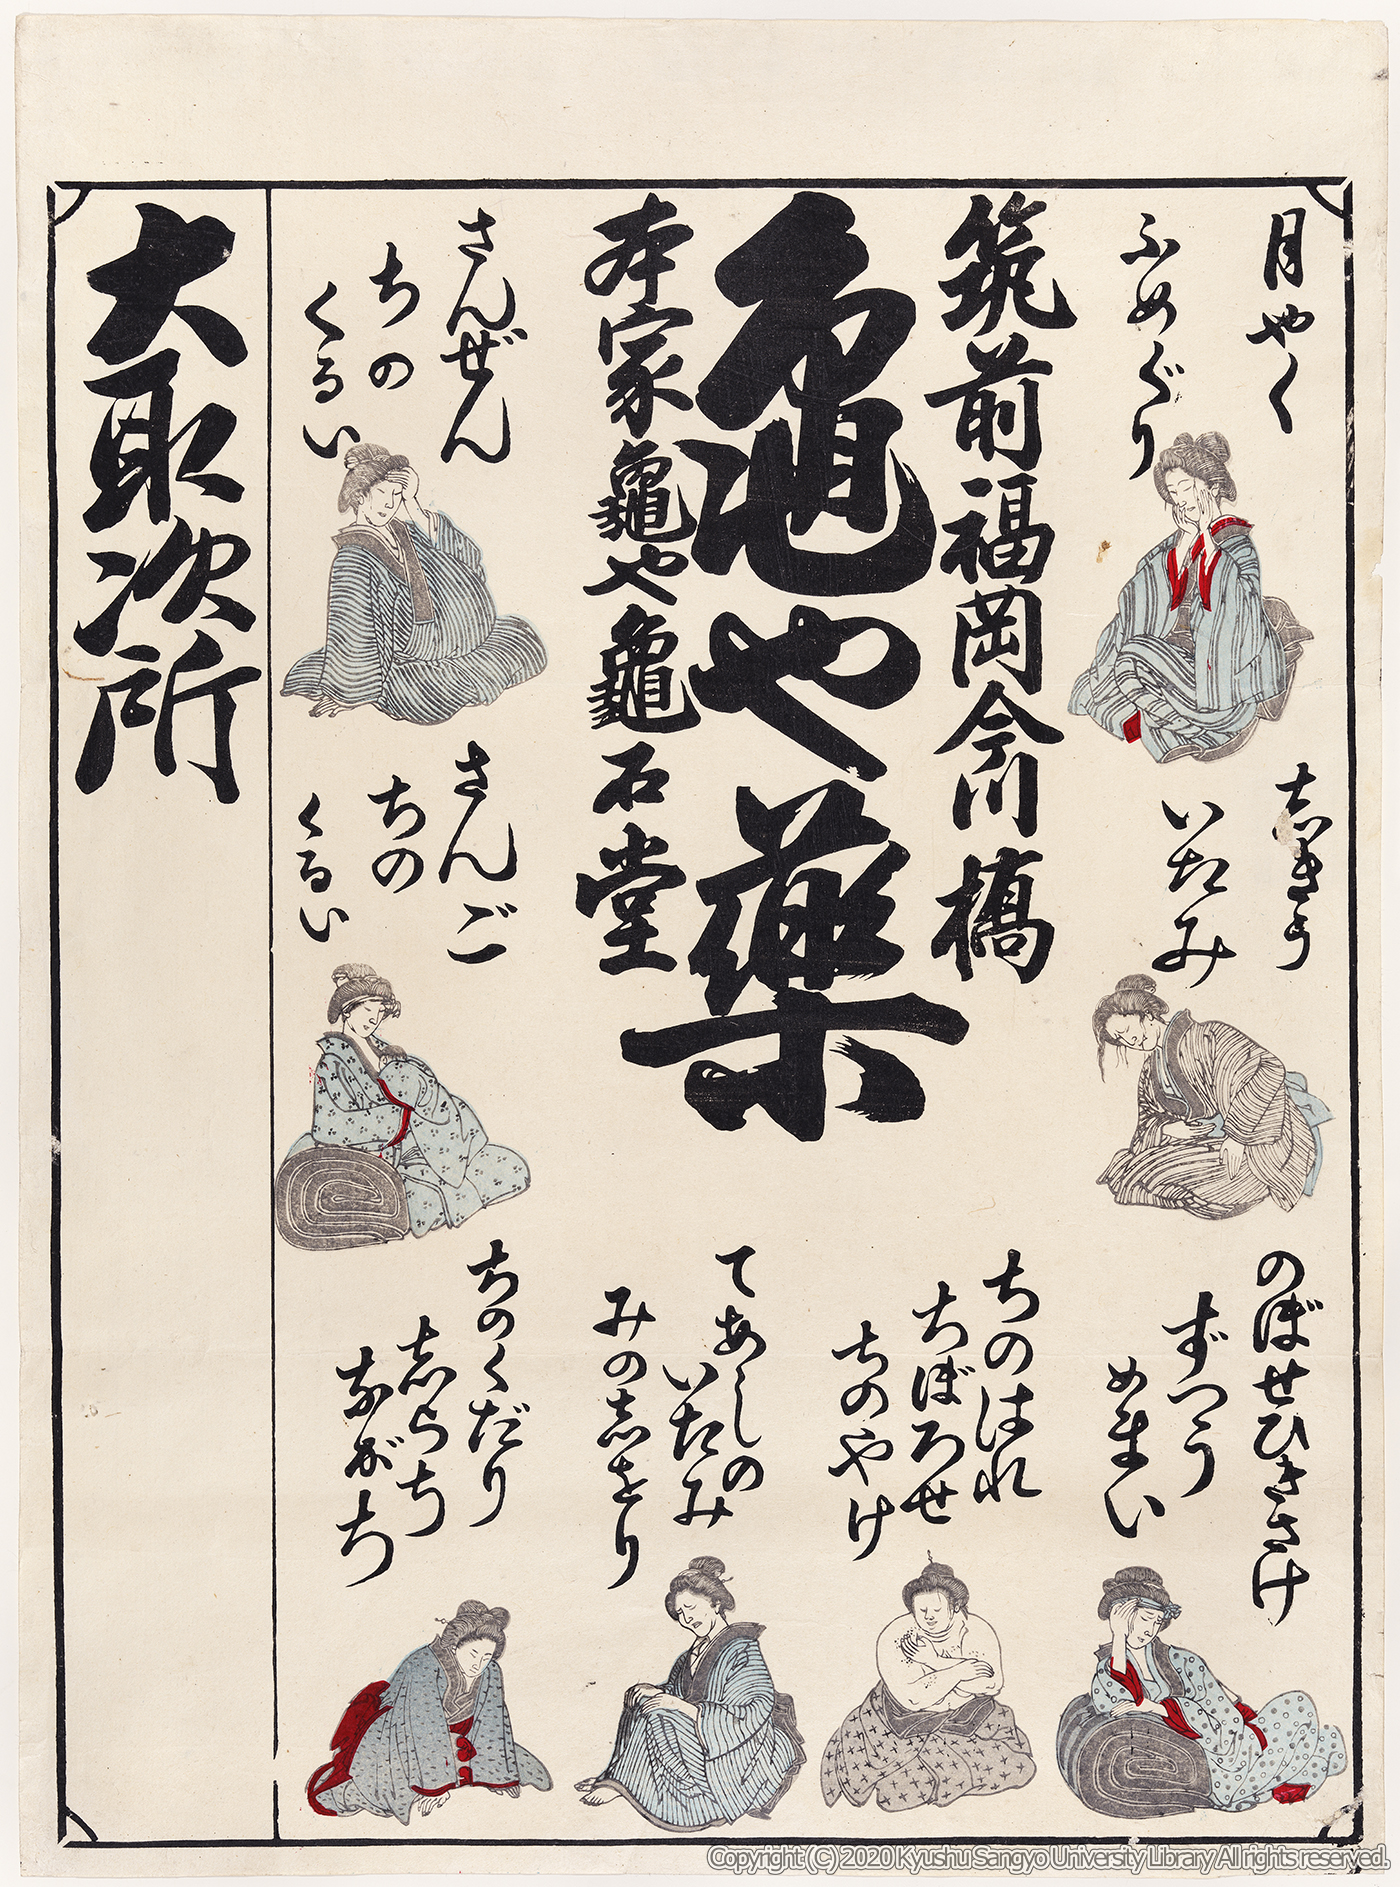 月やく
ふめぐり
志きう
いたみ
のぼせひきさけ
ずつう
めまい
筑前福岡今川橋
亀や薬
本家龜や龜石堂
ちのはれ
ちぼろせ
ちのやけ
てあしの
いたみ
みの志をり
さんぜん
ちの
くるい
さんご
ちの
くるい
ちのくだり
志らち
ながち
大取次所
Copyright (C) 2020 Kyushu Sangyo University Library All rights reserved.